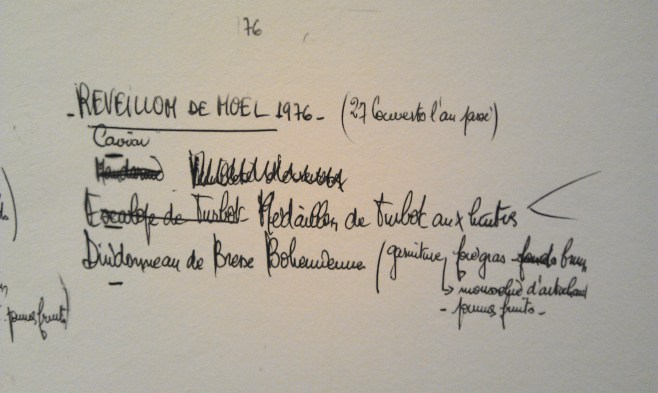 76
- REVEILLON DE NOEL 1976 - (27 Couverts l'an passé)
Caviar
Escalope de Turbot Médaillon de Turbot aux huitres
Dindonneau de Bresse Bohemienne (garniture foie gras fonds brun
d'artichaud
pommes fruits) - pommes fruits -